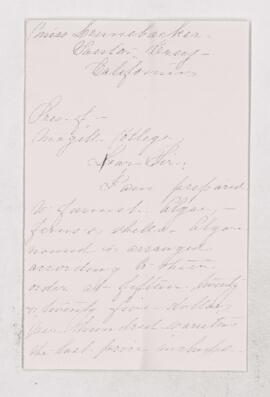 Miss Lennebacker.
Santa Cruz -
California
Pres. of -
McGill College,
Dear Sir:
I am prepared
to furnish Algae, -
ferns & shells. Algae
mound & arranged
according to their
order at fifteen, twenty
& twenty five dollars
per hundred varieties
the last price includes